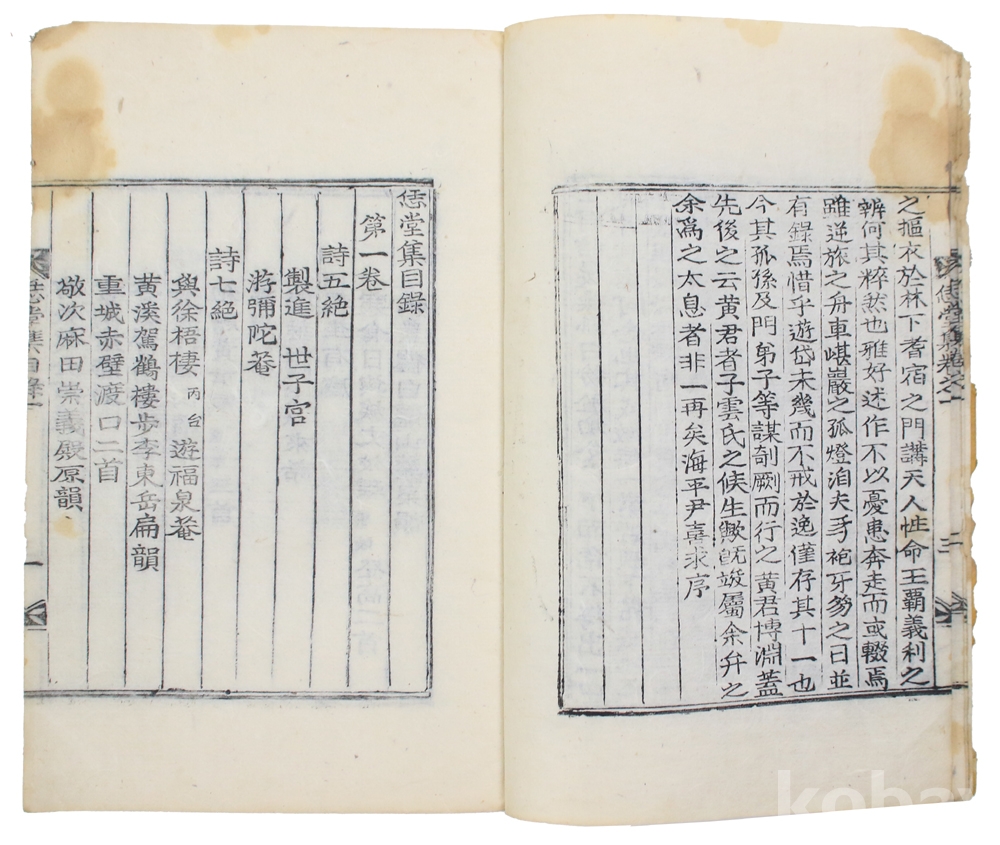 之摳衣於林下耆宿之門講天人性命王覇義利之
辨何其粹然也雅好述作不以憂患奔走而或輟焉
雖逆旅之舟車嵁巖之孤燈洎夫手袍牙笏之日並
有錄焉惜乎遊岱未幾而不戒於逸僅存其十一也
今其孤孫及門弟子等謀剞劂而行之黃君博淵蓋
先後之云黃君者子雲氏之候生歟旣竣屬余弁之
余爲之太息者非一再矣海平尹喜求序
恁堂集卷之一
二
恁堂集目錄
第一卷
詩五絶
製進 世子宮
游彌陀菴
詩七絶
與徐梧棲 丙台 遊福泉菴
黃溪駕鶴樓步李東岳扁韻
重城赤壁渡口二首
敬次麻田崇義殿原韻
恁堂集目錄
一
kobay